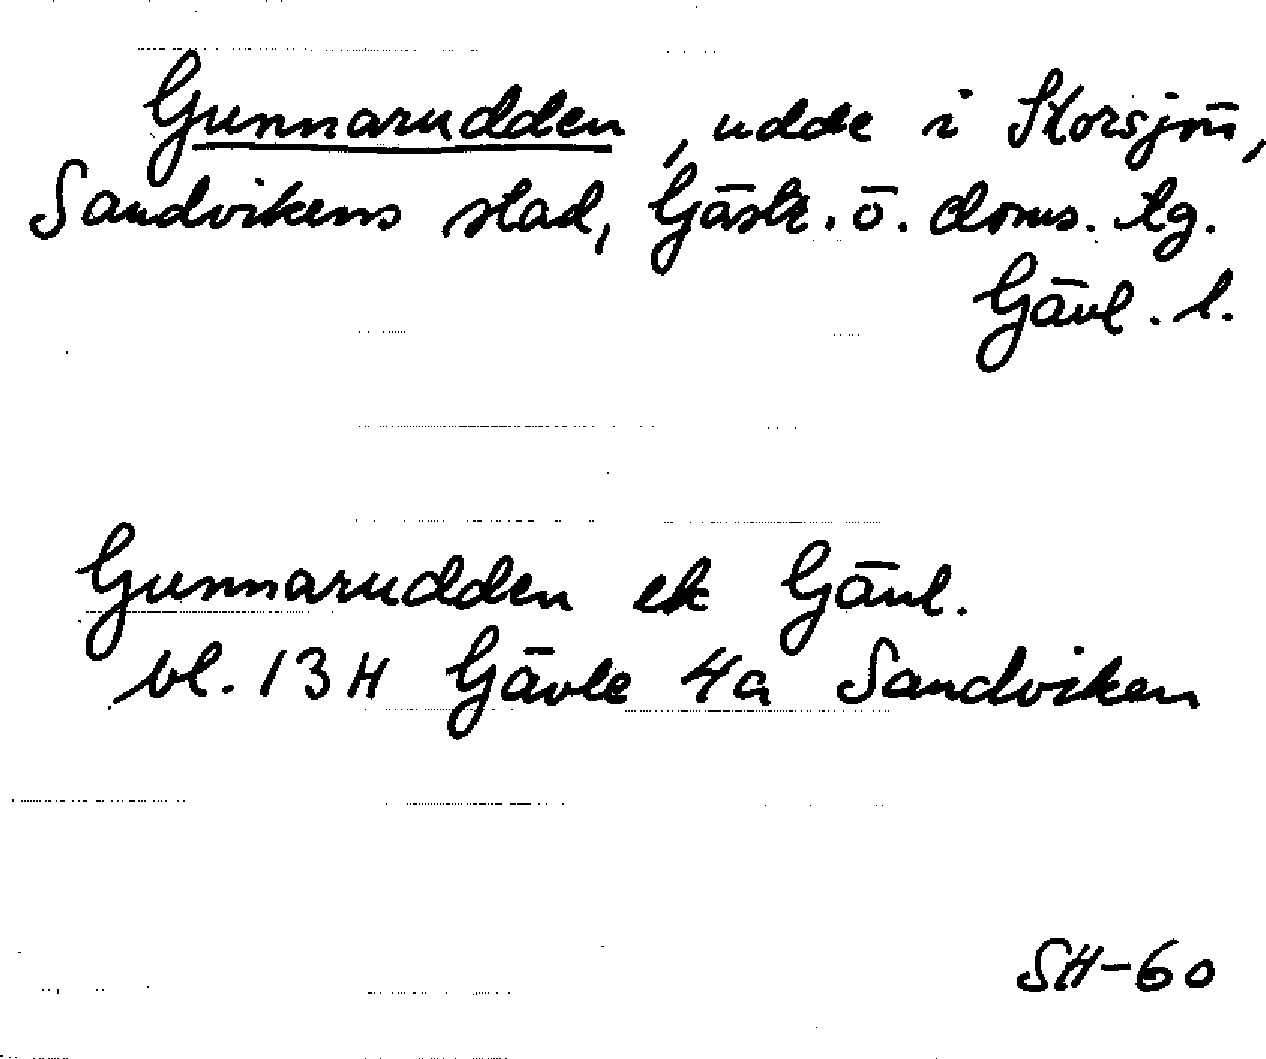 Gunnarudden, udde i Storsjön,
Sandvikens stad, Gästr. ö. doms. tg.
Gävl. l.
Gunnarudden ek Gävl.
bl. 13 H Gävle 4a Sandviken
SH-60